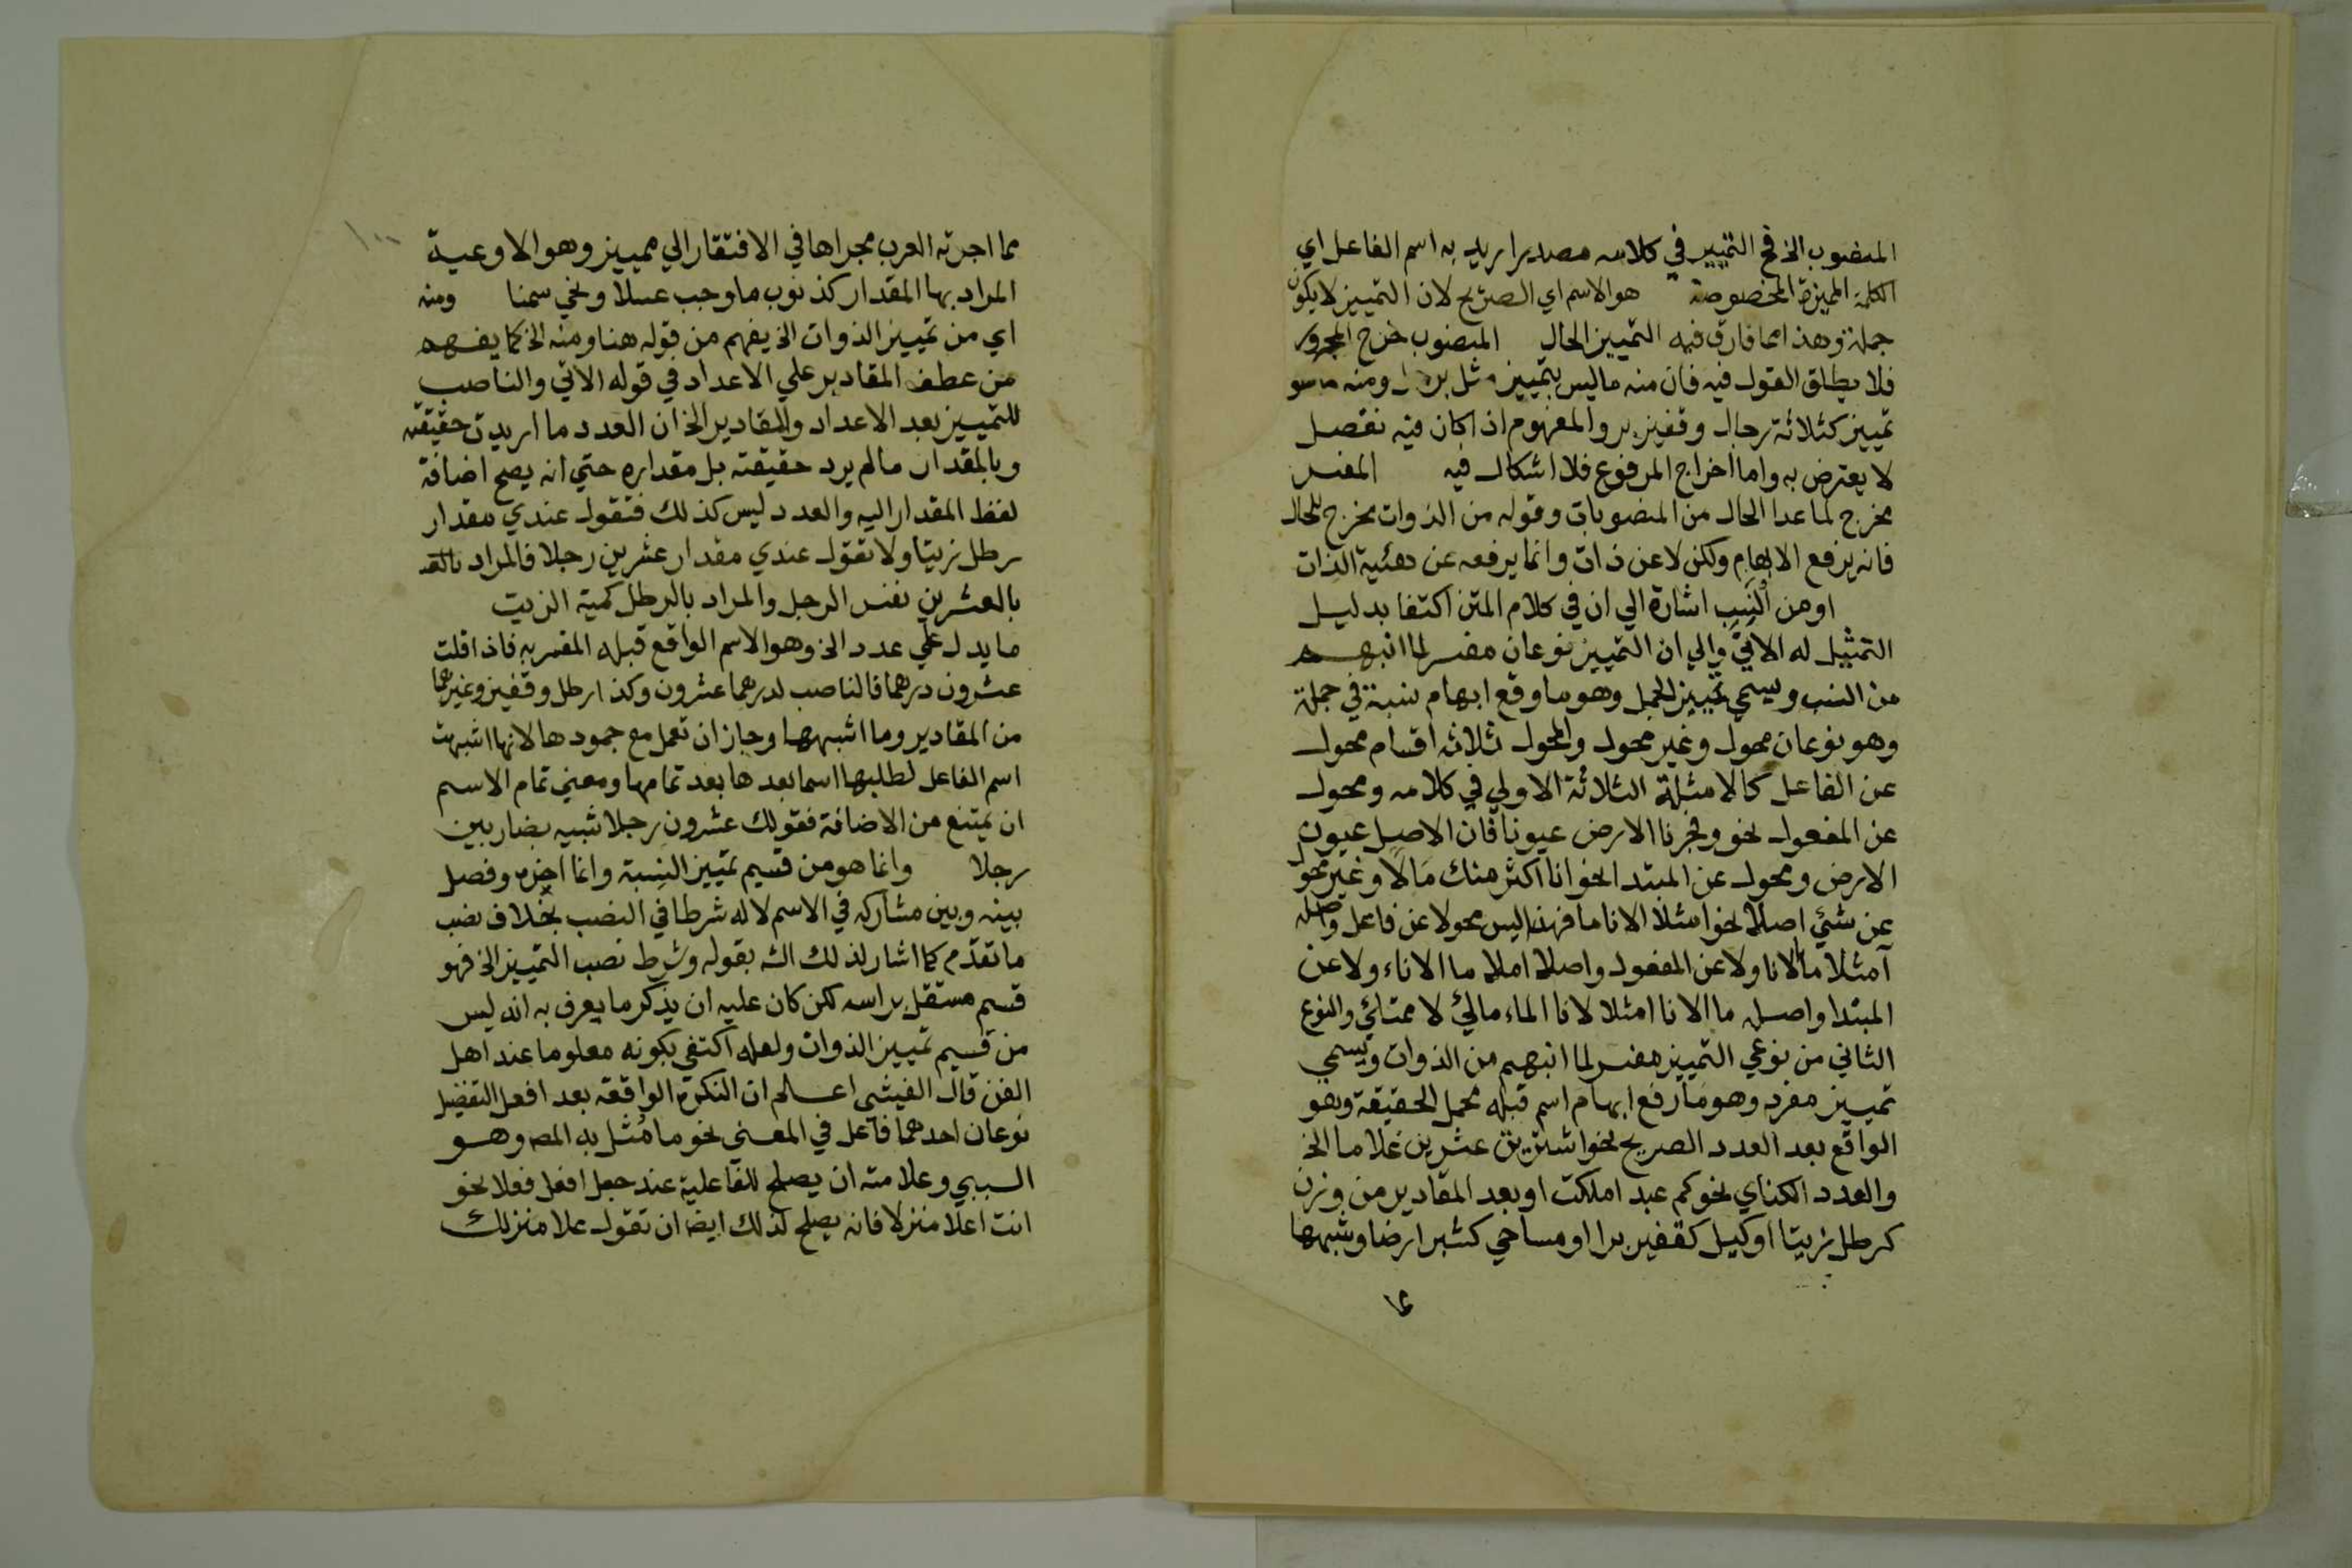 المنصوب الخ قح التمييز في كلامه مصدر اريد به اسم الفاعل اي
الكلمة المميزة المخصوصة هو الاسم اي الصريح لان التمييز لا يكون
جملة وهذا مما فارق فيه التمييز الحال المنصوب خرج المجرور
فلا يطلق القول فيه فان منه ما ليس بتمييز مثل ومنه ما هو
تمييز كثلاثة رجال وقفيز بر والمفهوم اذا كان فيه تفصل
لا يعترض به واما اخراج المرفوع فلا اشكال فيه المفسر
مخرج لما عدا الحال من المنصوبات وقوله من الذوات مخرج للحال
فانه يرفع الابهام ولكن لا عن ذات وانما يرفعه عن هئية الذات
او من النسب اشارة الي ان في كلام المتن اكتفا بدليل
التمثيل له الاتي والي ان التمييز نوعان مفسر لما انبهم
من النسب ويسمي تمييز الجمل وهو ما وقع ابهام نسبة في جملة
وهو نوعان محول وغير محول والمحول ثلاثه اقسام محول
عن الفاعل كالامثلة الثلاثة الاولي في كلامه ومحول
عن المفعول نحو وفجرنا الارض عيونا فان الاصل عيون
الارض ومحول عن المبتدا نحو انا اكثر منك مالا وغير محو
عن شئي اصلا نحو امتلا الانا ما فهذا ليس محولا عن فاعل واصله
آمتلا ما الانا ولا عن المفعول واصلا املا ما الاناء ولا عن
المبتدا واصله ما الانا امتلا لانا الماء مالئ لا ممتلئ والنوع
الثاني من نوعي التمييز مفسر لما انبهم من الذوات ويسمي
تمييز مفرد وهو ما رفع ابهام اسم قبله مجمل الحقيقة وهو
الواقع بعد العدد الصريح نحو اشتريت عشرين غلاما الخ
والعدد الكناي نحو كم عبد املكت او بعد المقادير من وزن
كرطل زيتا او كيل كقفيز برا او مساحي كشبر ارضا وشبهها
مما
مما اجرته العرب مجراها في الافتقار الي مميز وهو الاوعية
المراد بها المقدار كذنوب ما وجب عسلا ونحي سمنا ومنه
اي من تمييز الذوات الخ يفهم من قوله هنا ومنه الخ كما يفهم
من عطف المقادير علي الاعداد في قوله الاتي والناصب
للتمييز بعد الاعداد والمقادير الخ ان العدد ما اريدت حقيقته
وبالمقدار ما لم يرد حقيقته بل مقداره حتي انه يصح اضافة
لفظ المقدار اليه والعدد ليس كذلك فتقول عندي مقدار
رطل زيتا ولا تقول عندي مقدار عشرين رجلا فالمراد
بالعشرين نفس الرجل والمراد بالرطل كمية الزيت
ما يدل علي عدد الخ وهو الاسم الواقع قبله المفسر به فاذا قلت
عشرون درهما فالناصب لدرهما عشرون وكذا رطل وقفيز وغيرهما
من المقادير وما اشبهها وجاز ان تعمل مع جمودها لانها اشبهت
اسم الفاعل لطلبها اسما بعدها بعد تمامها ومعني تمام الاسم
ان يمتنع من الاضافة فقولك عشرون رجلا شبيه بضاربين
رجلا وانما هو من قسيم تمييز النسبة وانما اخره وفصل
بينه وبين مشاركه في الاسم لاله شرطا في النصب بخلاف نصب
ما تقدم كما اشار لذلك الشه بقوله وشرط نصب التمييز الخ فهو
قسم مستقل براسه لكن كان عليه ان يذكر ما يعرف به انه ليس
من قسيم تمييز الذوات ولعله اكتفي بكونه معلوما عند اهل
الفن قال الفيشي اعلم ان النكرة الواقعة بعد افعل التفضيل
نوعان احدهما فاعل في المعني نحو ما مثل به المصه وهو
السببي وعلامته ان يصلح للفاعلية عند جعل افعل فعلا نحو
انت اعلا منزلا فانه يصلح لذلك ايضا ان تقول علا منزلك
١٠٠